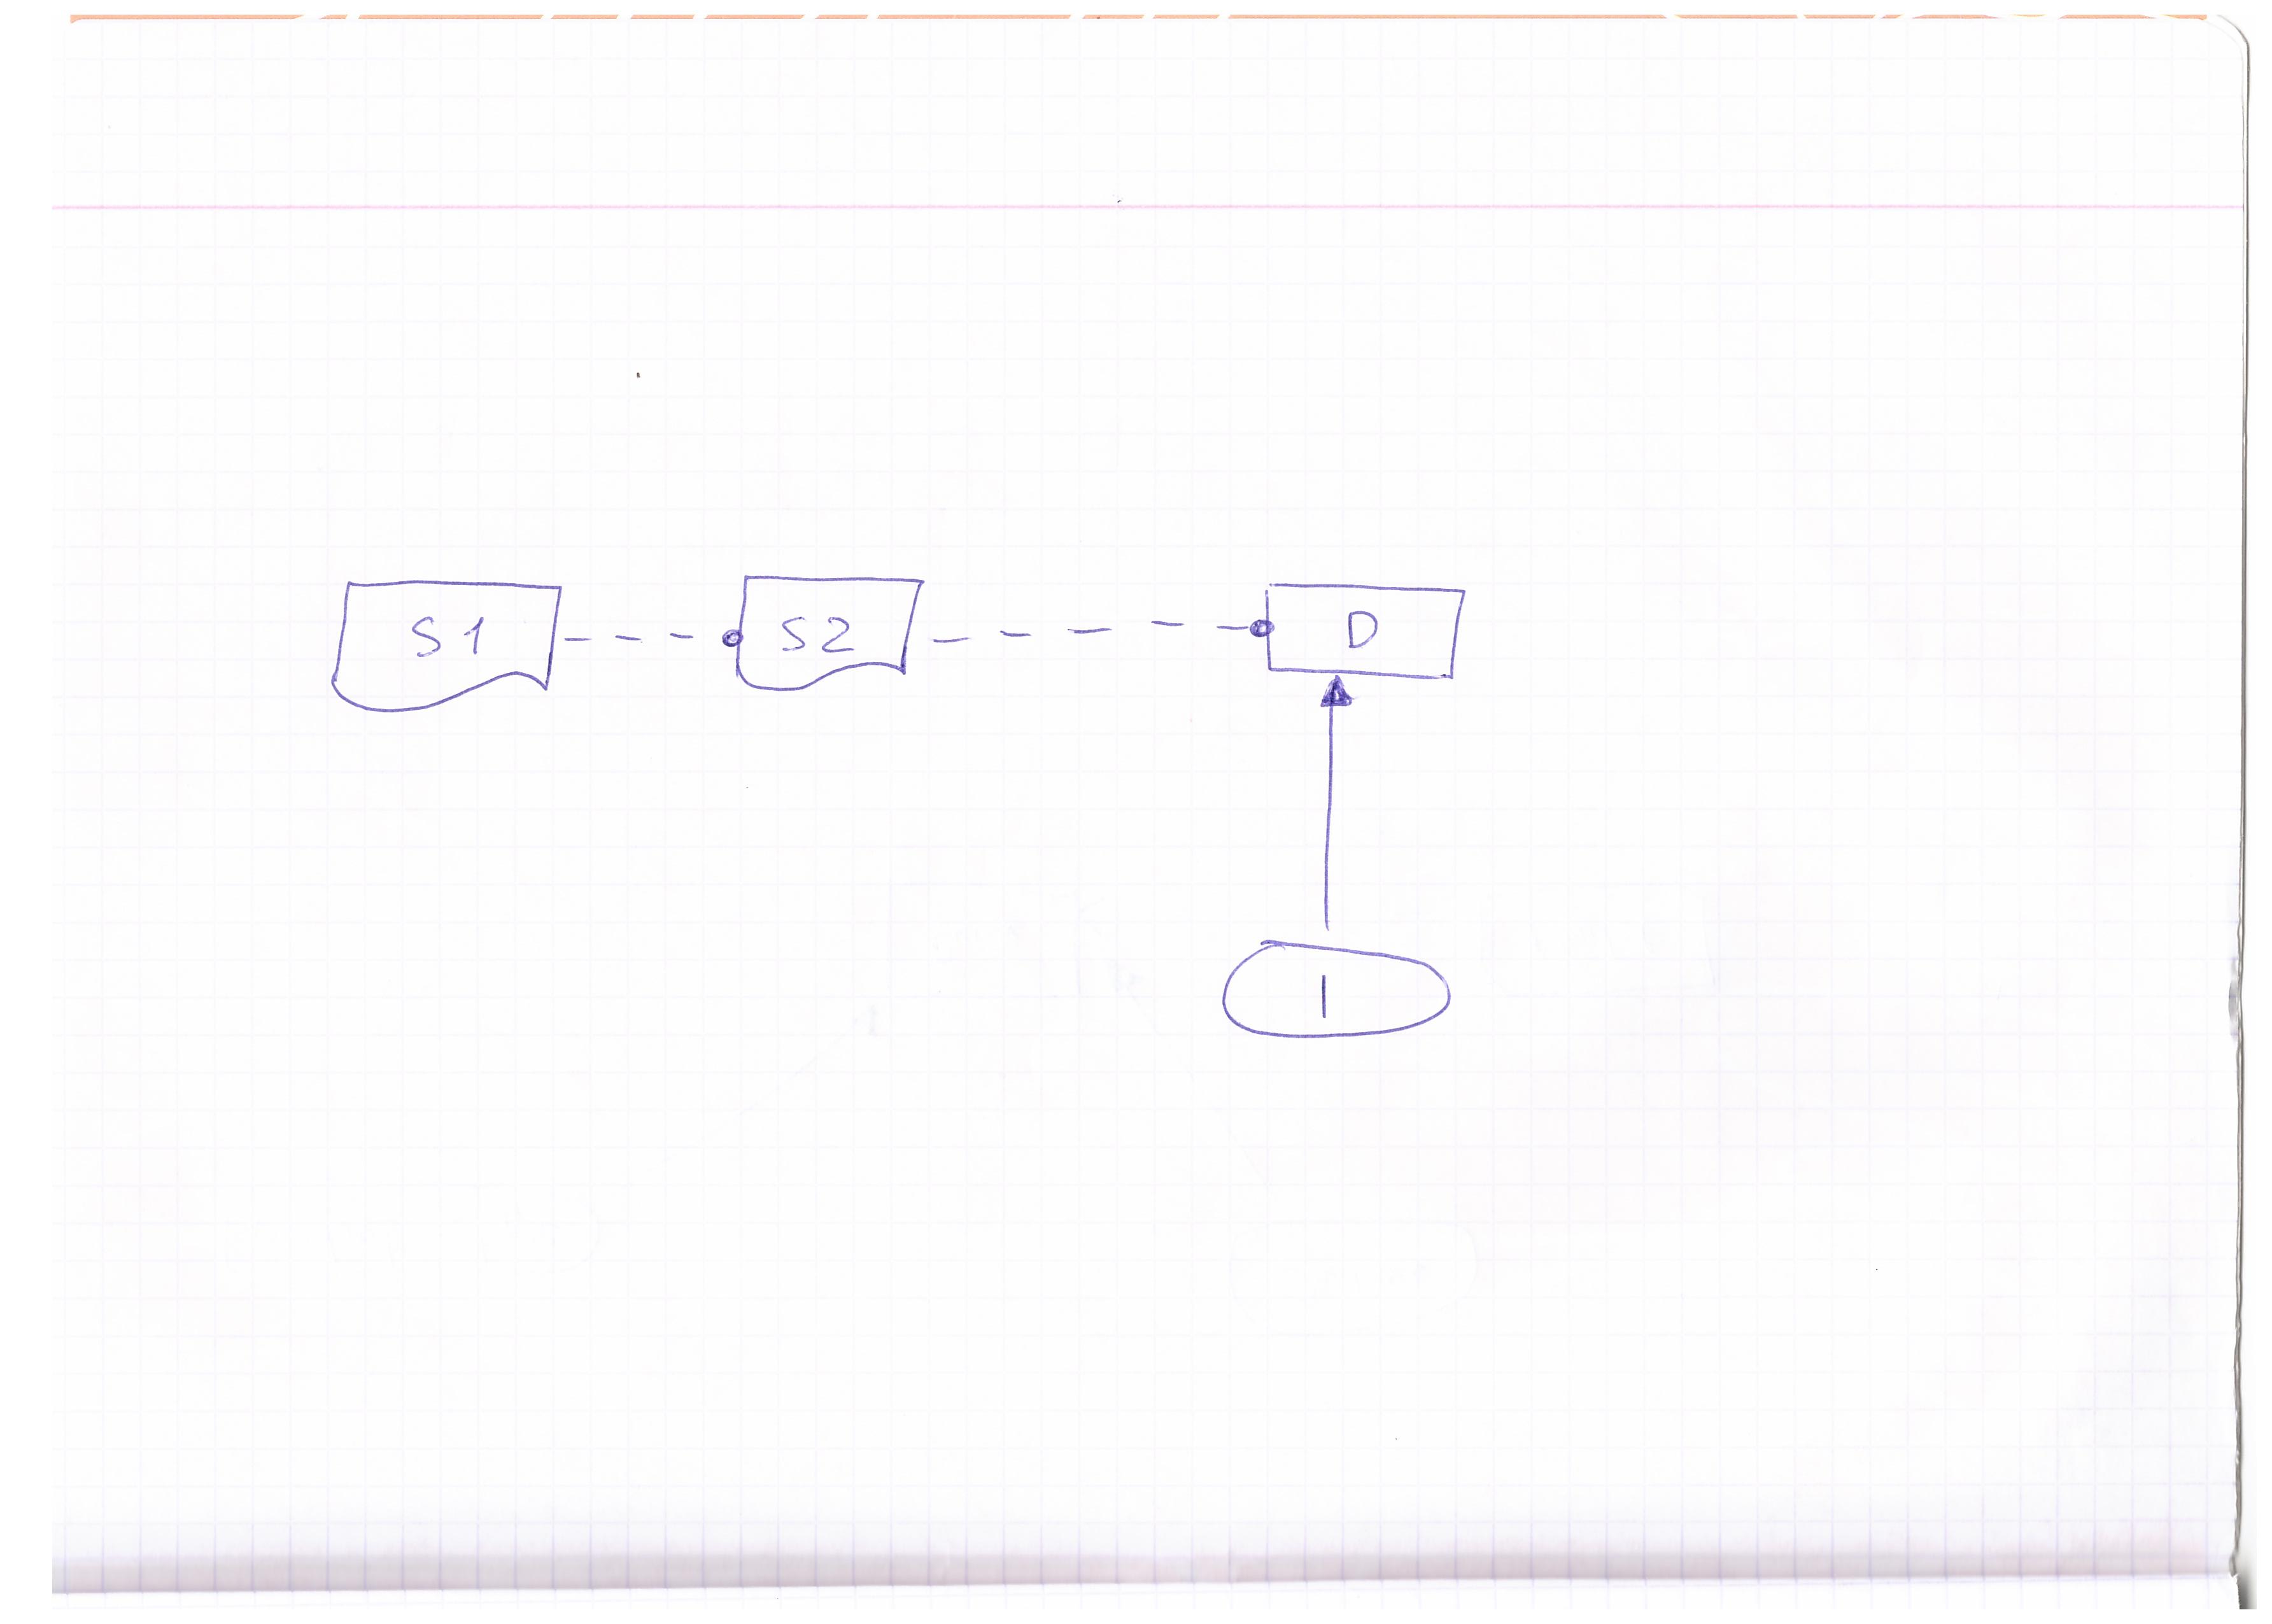 S1 S2 D
I